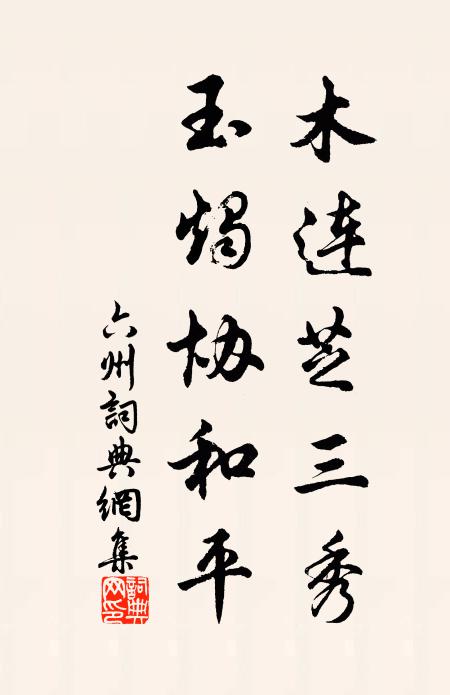 木连芝三秀
玉烛协和平
六州詞典網集
詞典网印